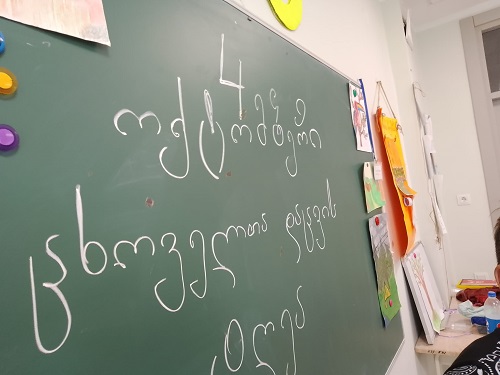 4
ოქტომბერი
ცხოველთა დაცვის
დღეა